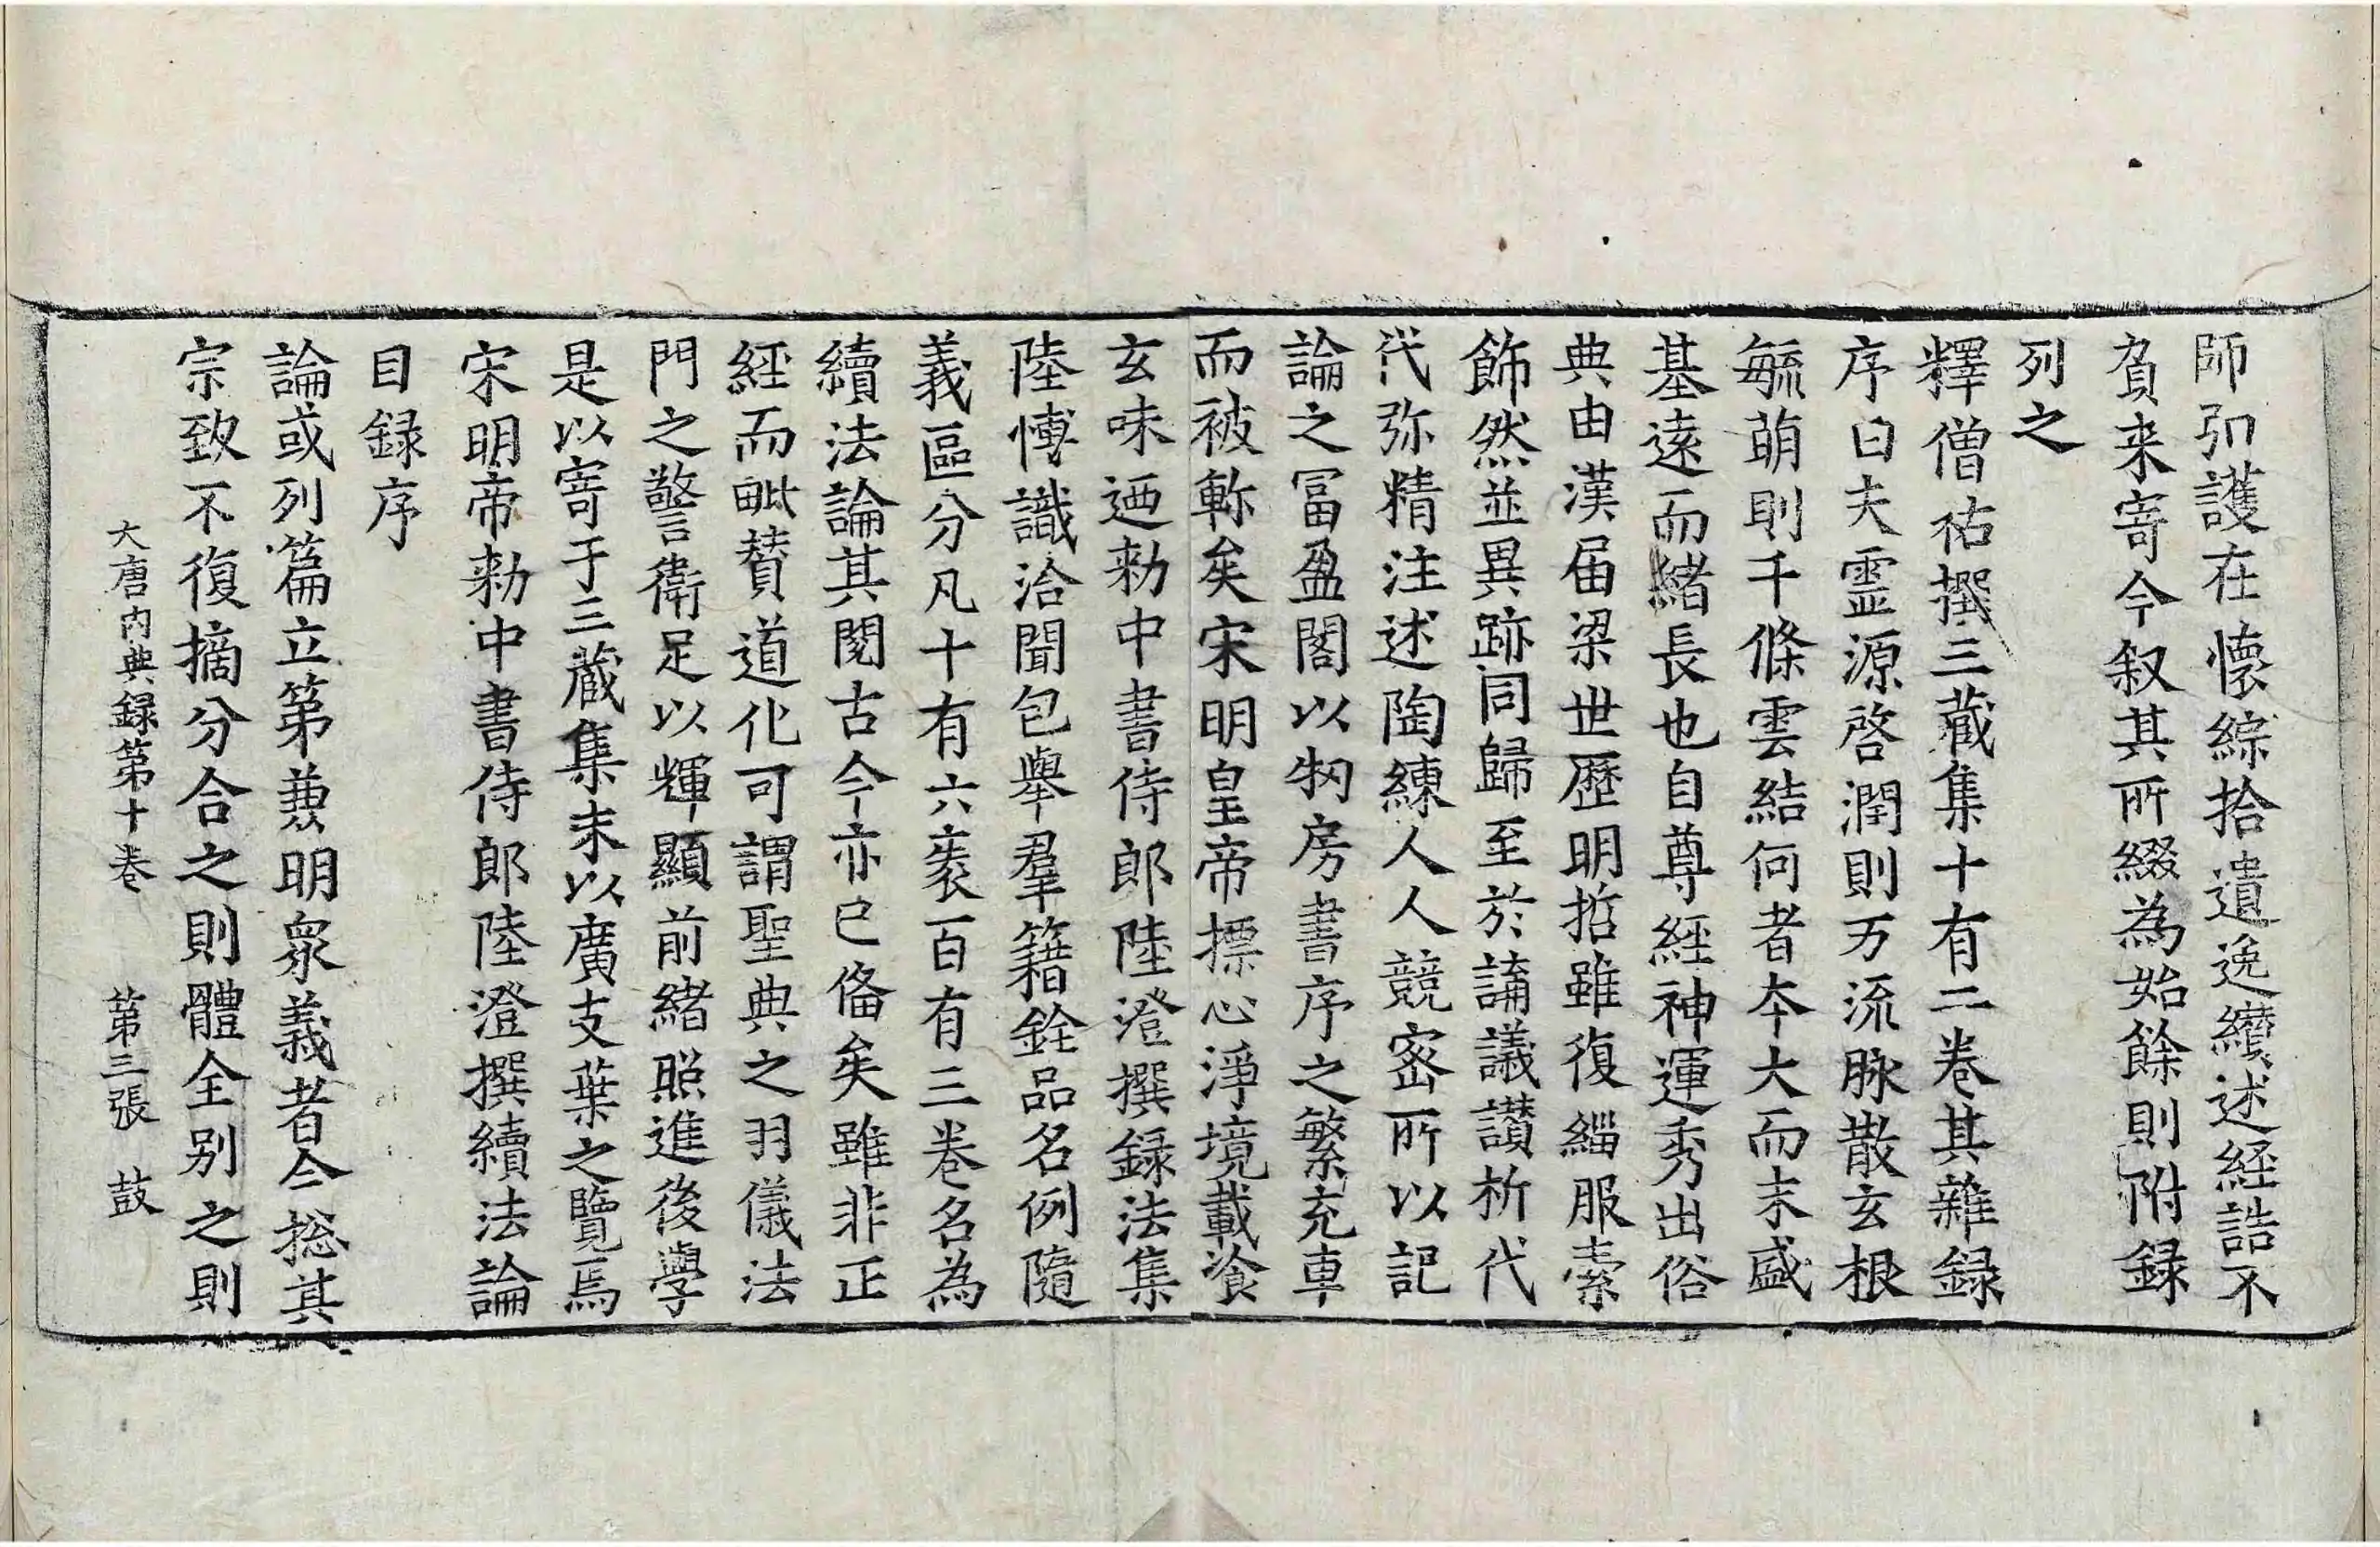 師弘護在懷綜拾遺逸纘述経誥不
負来寄今叙其所綴為始餘則附録
列之
釋僧祐撰三藏集十有二卷其雜録
序曰夫靈源啓潤則万流脉散玄根
毓萌則千條雲結何者夲大而末盛
基遠而緒長也自尊経神運秀出俗
典由漢届梁世歷明哲雖復緇服索
飾然並異跡同歸至於誦議讃析代
代弥精注述陶練人人競密所以記
論之冨盈閣以牣房書序之繁充車
而被軫矣宋明皇帝摽心淨境載飡
玄味迺勅中書侍郎陸澄撰録法集
陸愽識洽聞包舉羣籍銓品名例隨
義區分凡十有六袠百有三卷名為
續法論其閱古今亦已俻矣雖非正
経而毗賛道化可謂聖典之羽儀法
門之警衛足以輝顯前緒照進後學
是以寄于三藏集末以廣支葉之覽焉
宋明帝勅中書侍郎陸澄撰續法論
目録序
論或列篇立第兼明衆義者今捴其
宗致不復摘分合之則體全别之則
大唐内典録第十卷　第三張　鼓